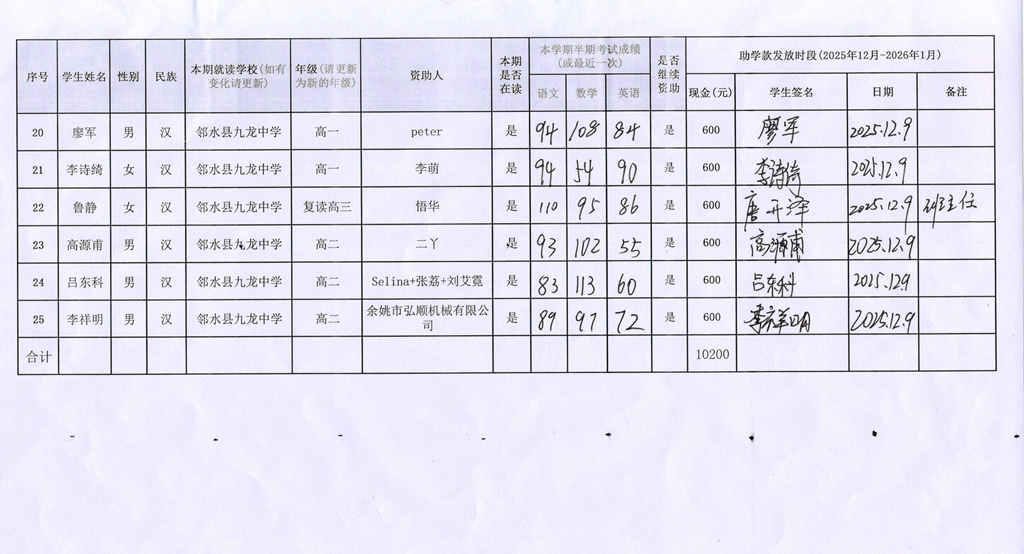 序号 学生姓名 性别 民族 本期就读学校(如有变化请更新) 年级(请更新为新的年级) 资助人 本期是否在读 本学期半期考试成绩(或最近一次) 是否继续资助 助学款发放时段(2025年12月-2026年1月)
语文 数学 英语 现金(元) 学生签名 日期 备注
20 廖军 男 汉 邻水县九龙中学 高一 peter 是 94 108 84 是 600 廖军 2025.12.9
21 李诗绮 女 汉 邻水县九龙中学 高一 李萌 是 94 54 90 是 600 李诗绮 2025.12.9
22 鲁静 女 汉 邻水县九龙中学 复读高三 悟华 是 110 95 86 是 600 唐开泽 2025.12.9 班主任
23 高源甫 男 汉 邻水县九龙中学 高二 二丫 是 93 102 55 是 600 高源甫 2025.12.9
24 吕东科 男 汉 邻水县九龙中学 高二 Selina+张荔+刘艾霓 是 83 113 60 是 600 吕东科 2025.12.9
25 李祥明 男 汉 邻水县九龙中学 高二 余姚市弘顺机械有限公司 是 89 97 72 是 600 李祥明 2025.12.9
合计 10200